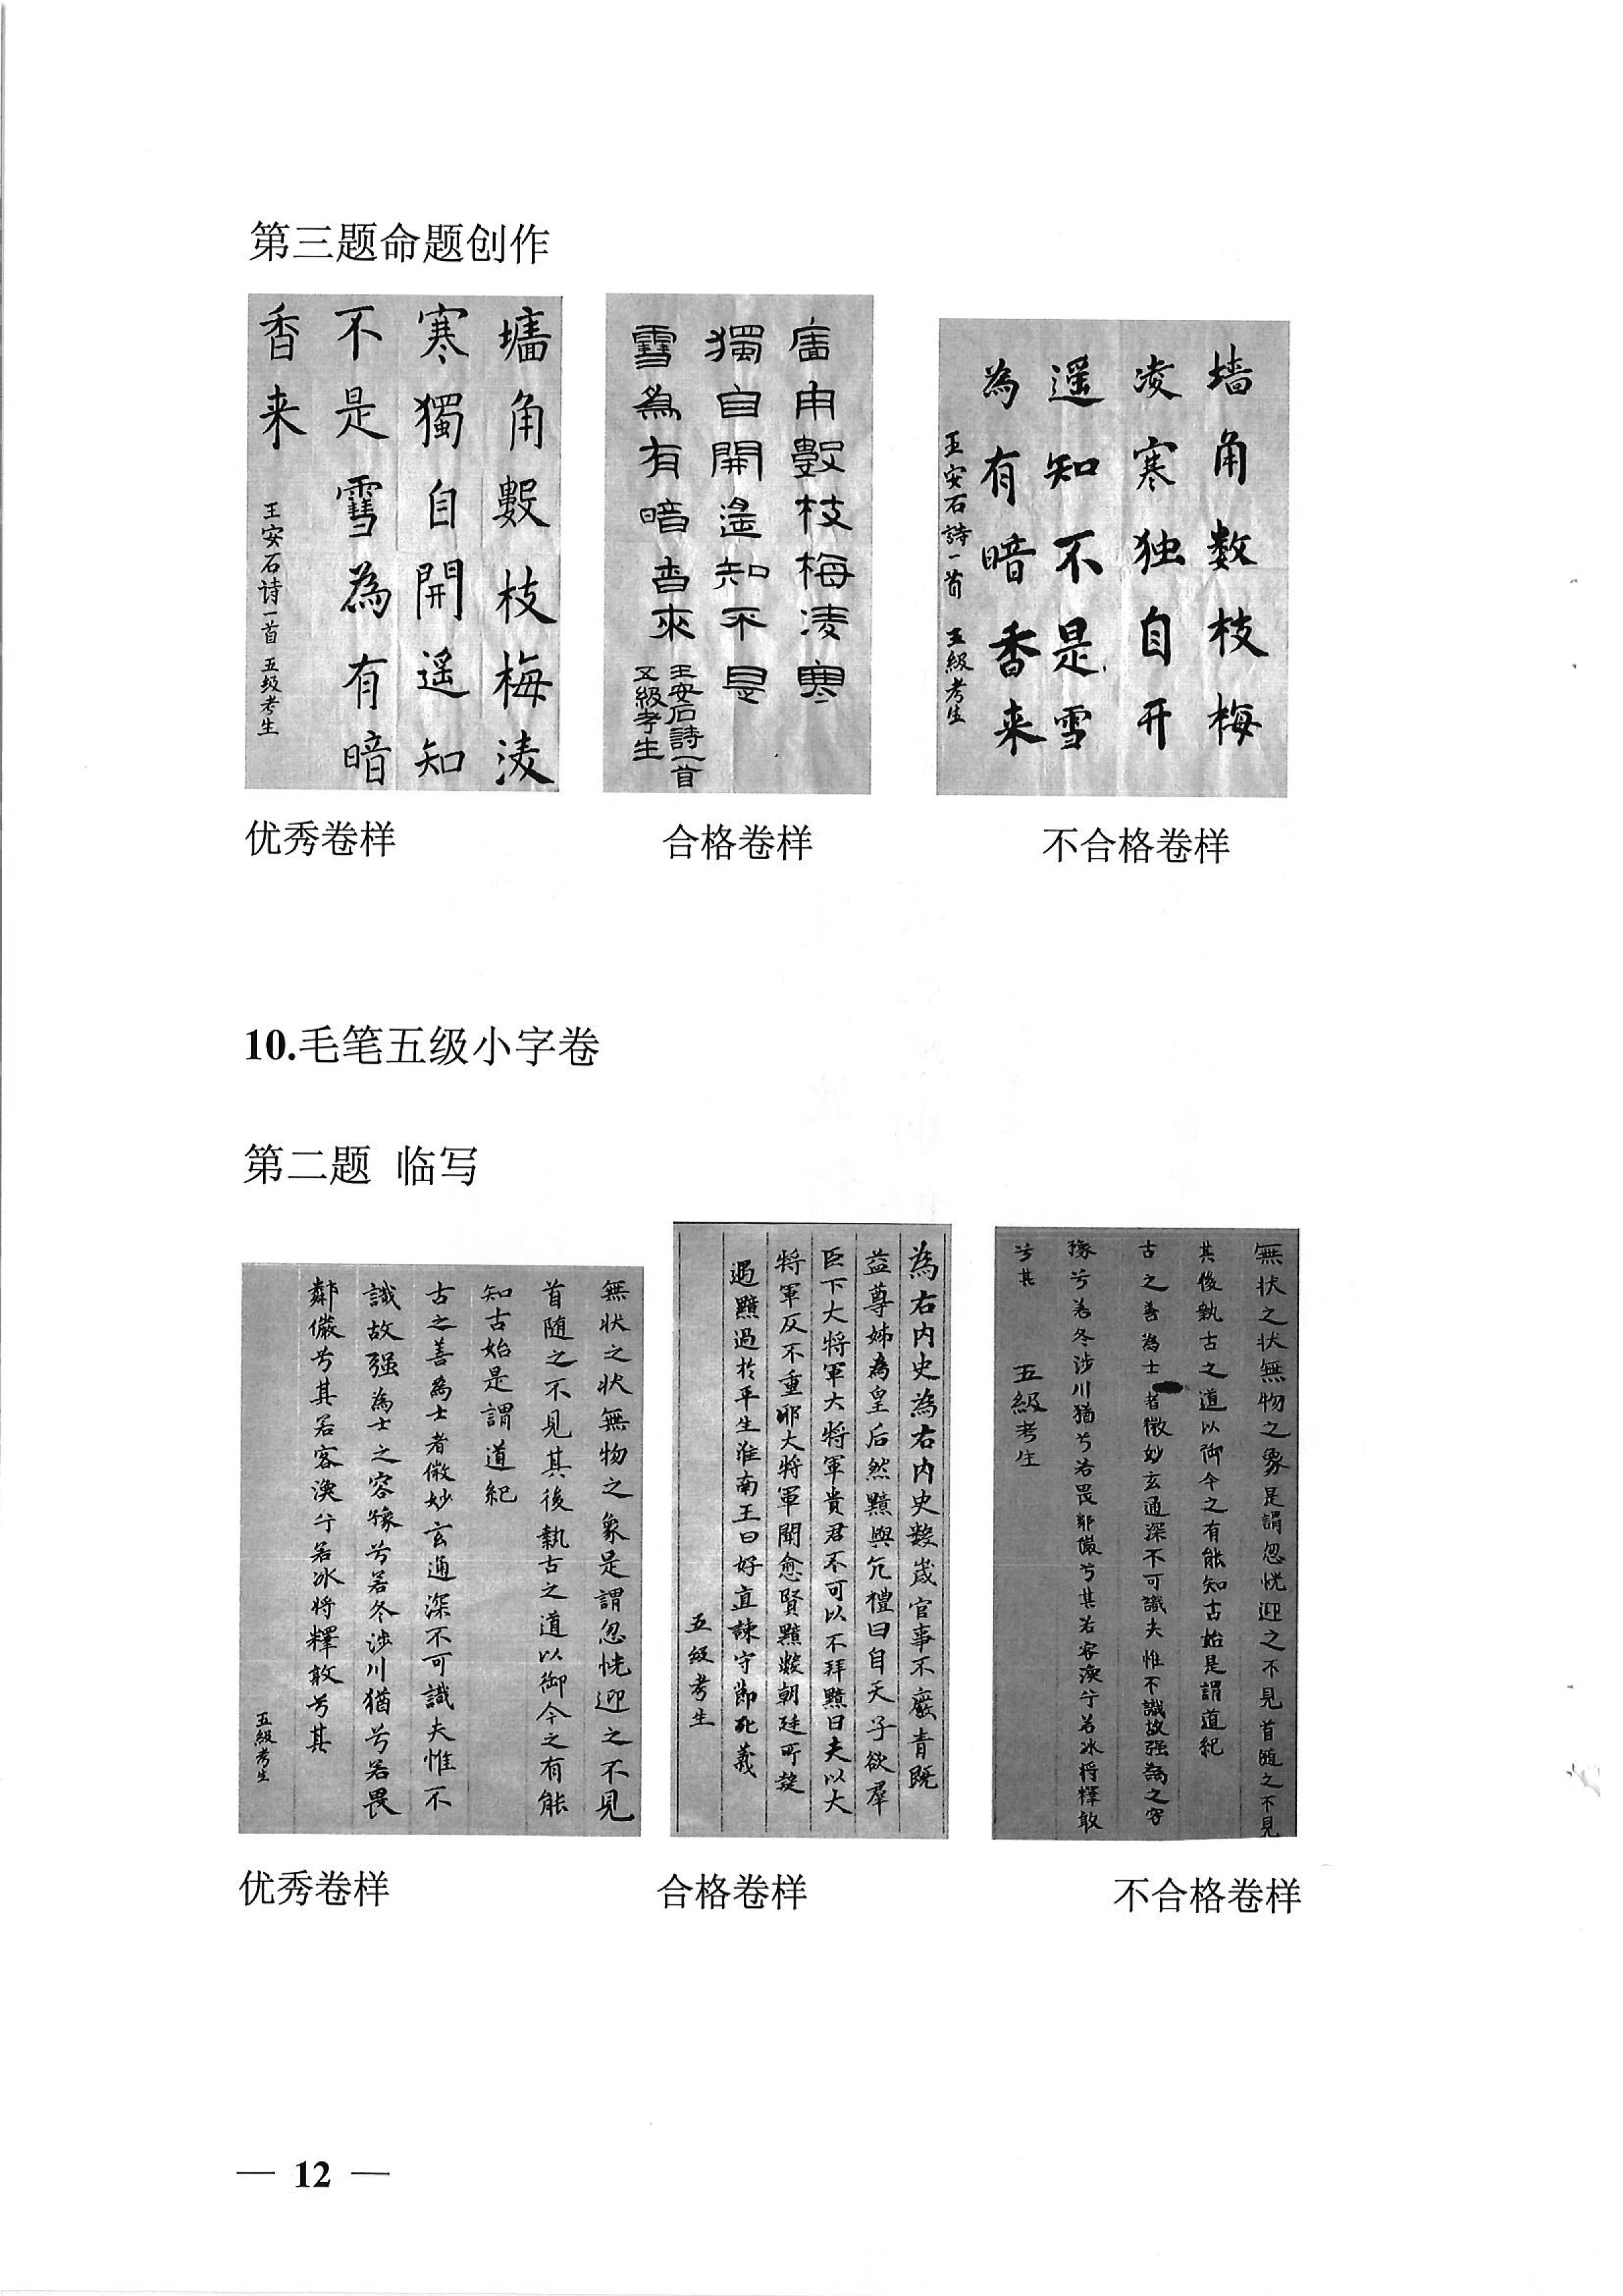 第三题命题创作
墻角數枝梅凌
寒獨自開遥知
不是雪為有暗
香来
王安石诗一首 五级考生
墻角數枝梅凌寒
獨自開遥知不是
雪為有暗香來
王安石詩一首
五級考生
墙角数枝梅
凌寒独自开
遥知不是雪
為有暗香来
王安石詩一首 五級考生
优秀卷样
合格卷样
不合格卷样
10.毛笔五级小字卷
第二题 临写
無状之状無物之象是謂忽恍迎之不見
首随之不見其後執古之道以御今之有能
知古始是謂道紀
古之善為士者微妙玄通深不可識夫惟不
識故强為士之容豫兮若冬涉川猶兮若畏
鄰儼兮其若客渙兮若冰将釋敦兮其
五級考生
為右内史為右内史數歲官事不廢青既
益尊姊為皇后然黯與亢禮曰自天子欲羣
臣下大将軍大将軍貴君不可以不拜黯曰夫以大
将軍反不重耶大将軍聞愈賢黯數朝廷所疑
遇黯過於平生淮南王曰好直諫守節死義
五級考生
無状之状無物之象是謂忽恍迎之不見首随之不見
其後執古之道以御今之有能知古始是謂道紀
古之善為士者微妙玄通深不可識夫惟不識故强為之容
豫兮若冬涉川猶兮若畏鄰儼兮其若客渙兮若冰将釋敦
兮其 五級考生
优秀卷样
合格卷样
不合格卷样
— 12 —